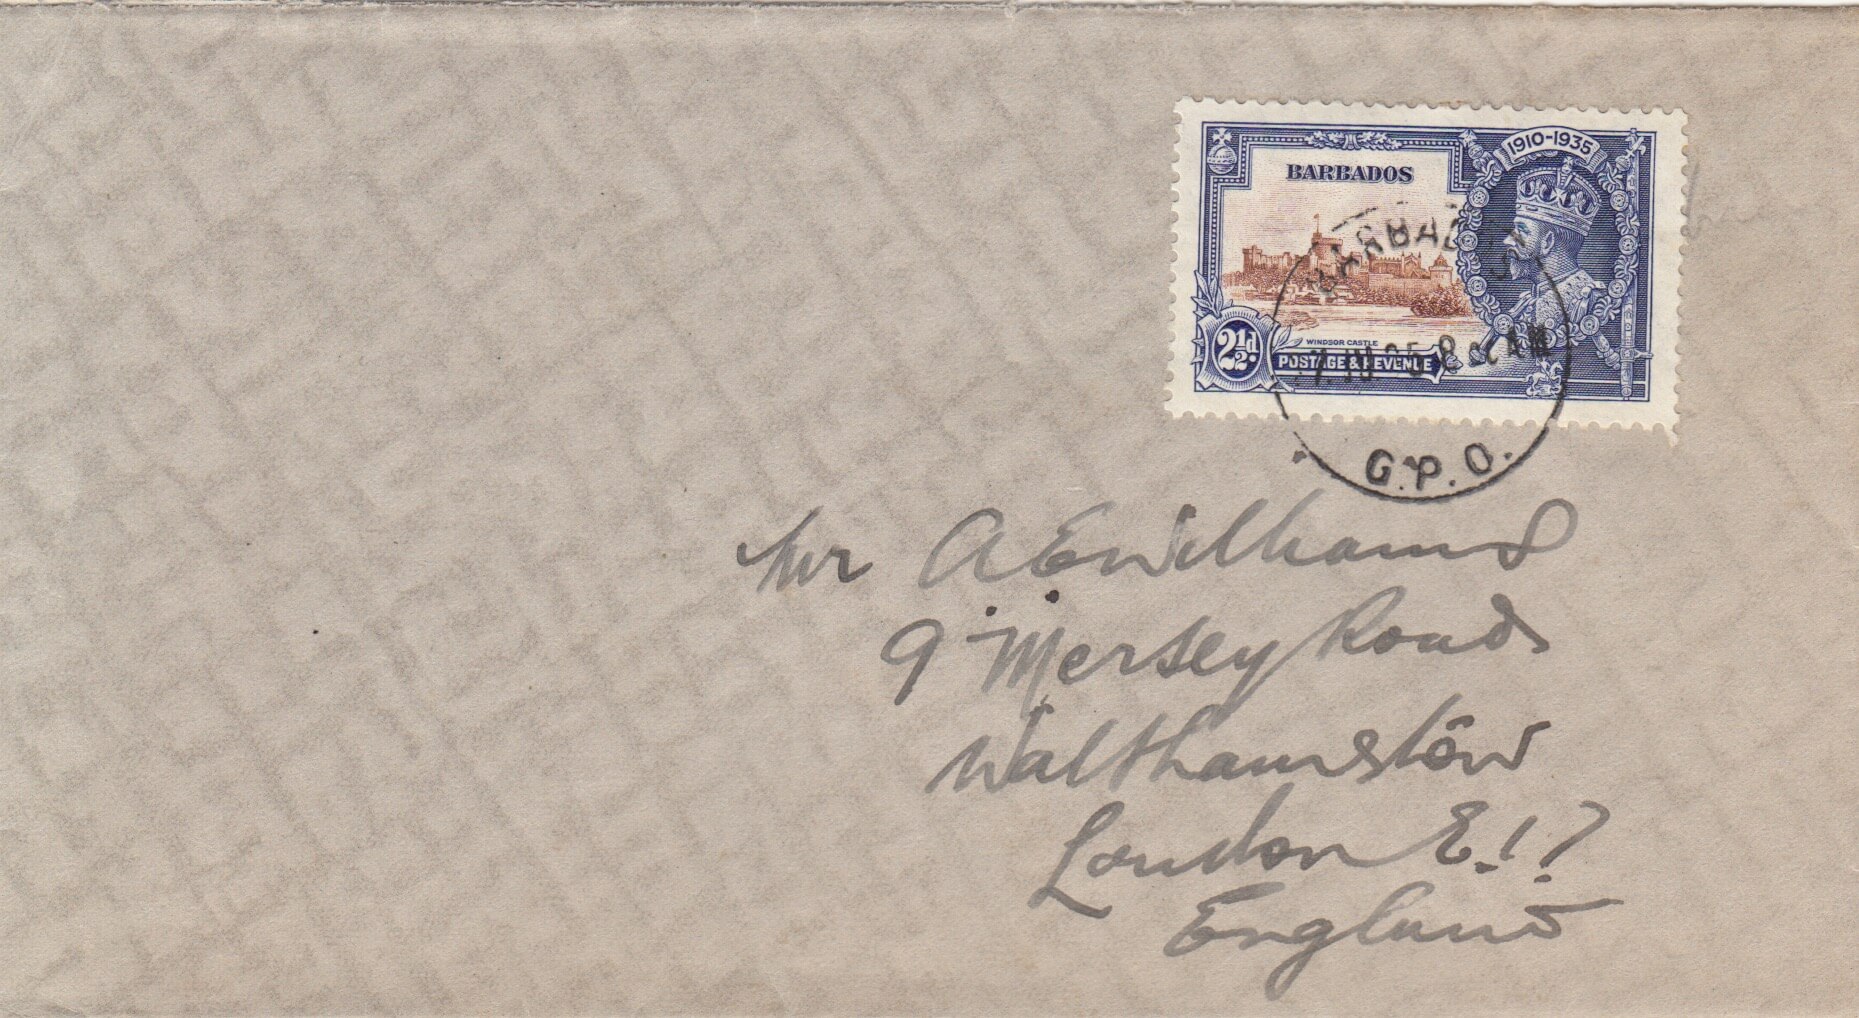 1910-1935
BARBADOS
WINDSOR CASTLE
2½d.
POSTAGE & REVENUE
BARBADOS
8 AM
G.P.O.
Mr A E Williams
9 Mersey Road
Walthamstow
London E.17
England